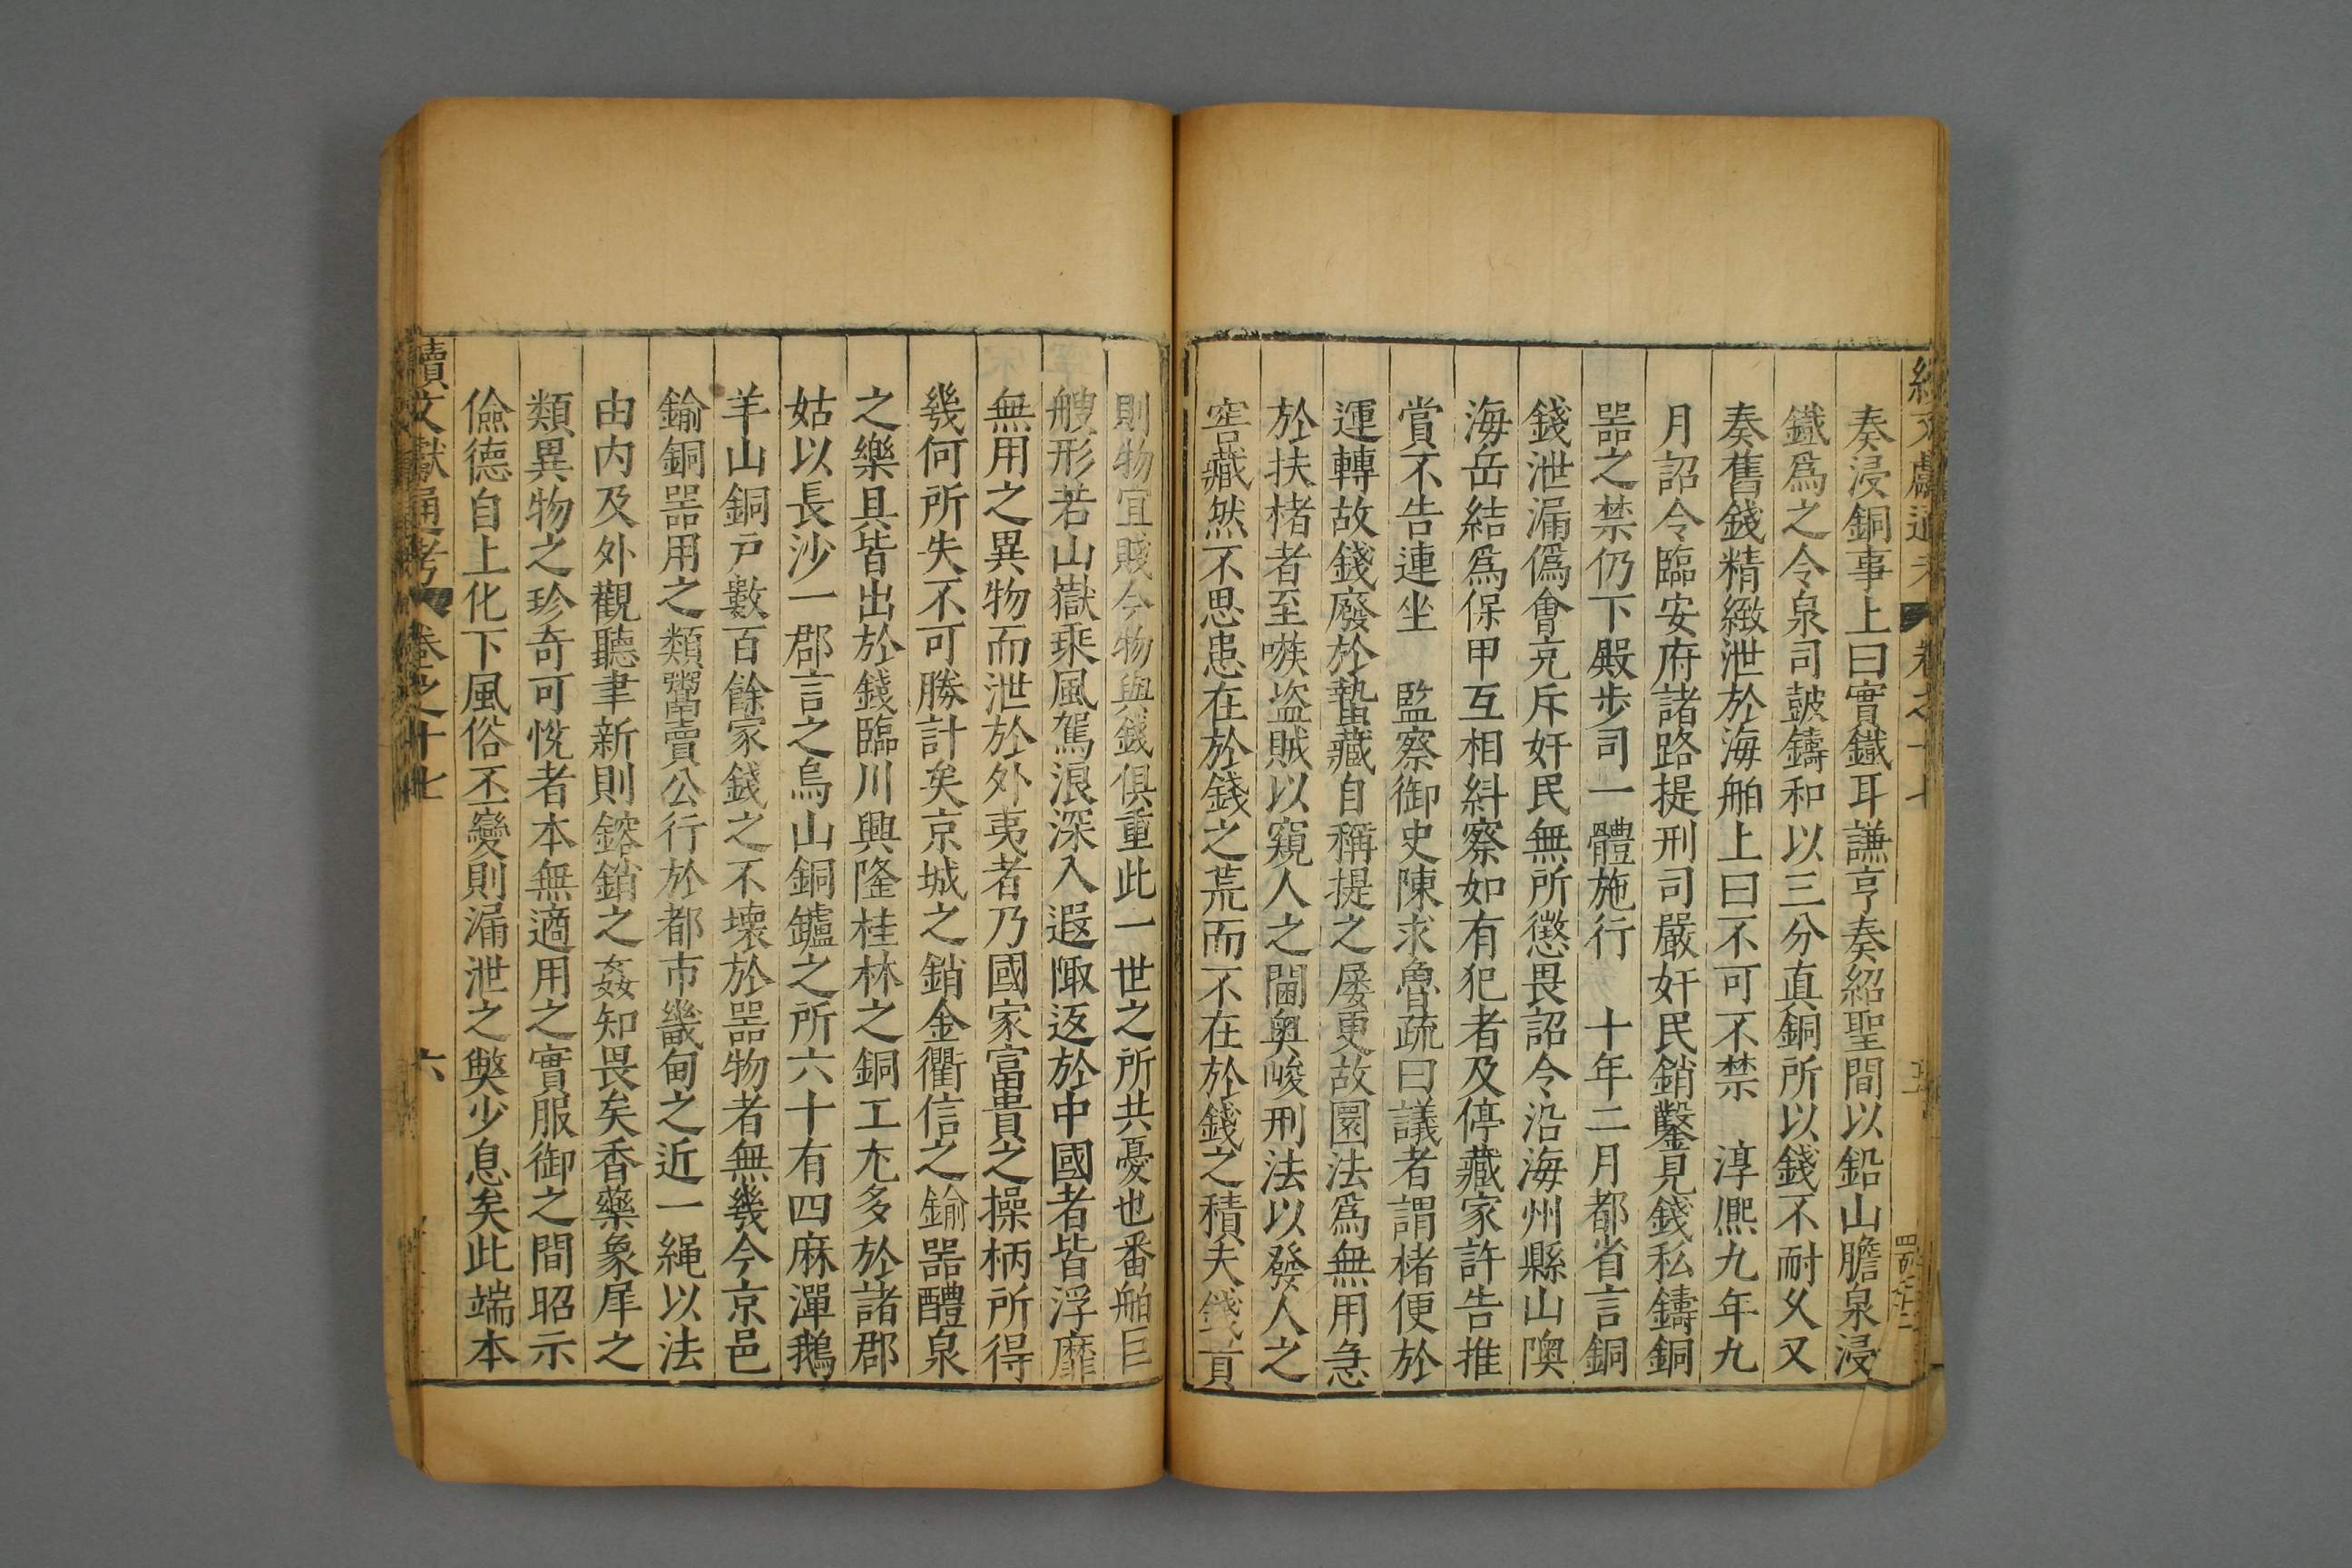 續文獻通考 卷之十七
奏浸銅事上曰實鐵耳謙亨奏紹聖間以鉛山膽泉浸
鐵爲之令泉司鼓鑄和以三分真銅所以錢不耐乆又
奏舊錢精緻泄於海舶上曰不可不禁 淳熈九年九
月詔令臨安府諸路提刑司嚴奸民銷鑿見錢私鑄銅
噐之禁仍下殿步司一體施行 十年二月都省言銅
錢泄漏僞會充斥奸民無所懲畏詔令沿海州縣山隩
海岳結爲保甲互相紏察如有犯者及停藏家許告推
賞不告連坐 監察御史陳求魯疏曰議者謂楮便於
運轉故錢廢於蟄藏自稱提之屡更故圜法爲無用急
於扶楮者至嗾盗賊以窺人之閫奥峻刑法以發人之
窖藏然不思患在於錢之荒而不在於錢之積夫錢貴
則物宜賤今物與錢俱重此一世之所共憂也番舶巨
艘形若山嶽乘風駕浪深入遐陬返於中國者皆浮靡
無用之異物而泄於外夷者乃國家富貴之操柄所得
幾何所失不可勝計矣京城之銷金衢信之鍮噐醴泉
之樂具皆出於錢臨川興隆桂林之銅工尢多於諸郡
姑以長沙一郡言之烏山銅鑪之所六十有四麻潭鵝
羊山銅戸數百餘家錢之不壊於噐物者無幾今京邑
鍮銅噐用之類鬻賣公行於都市畿甸之近一繩以法
由内及外觀聽聿新則鎔銷之姦知畏矣香藥象犀之
類異物之珍奇可恱者本無適用之實服御之間昭示
儉德自上化下風俗丕變則漏泄之獘少息矣此端本
續文獻通考 卷之十七 六